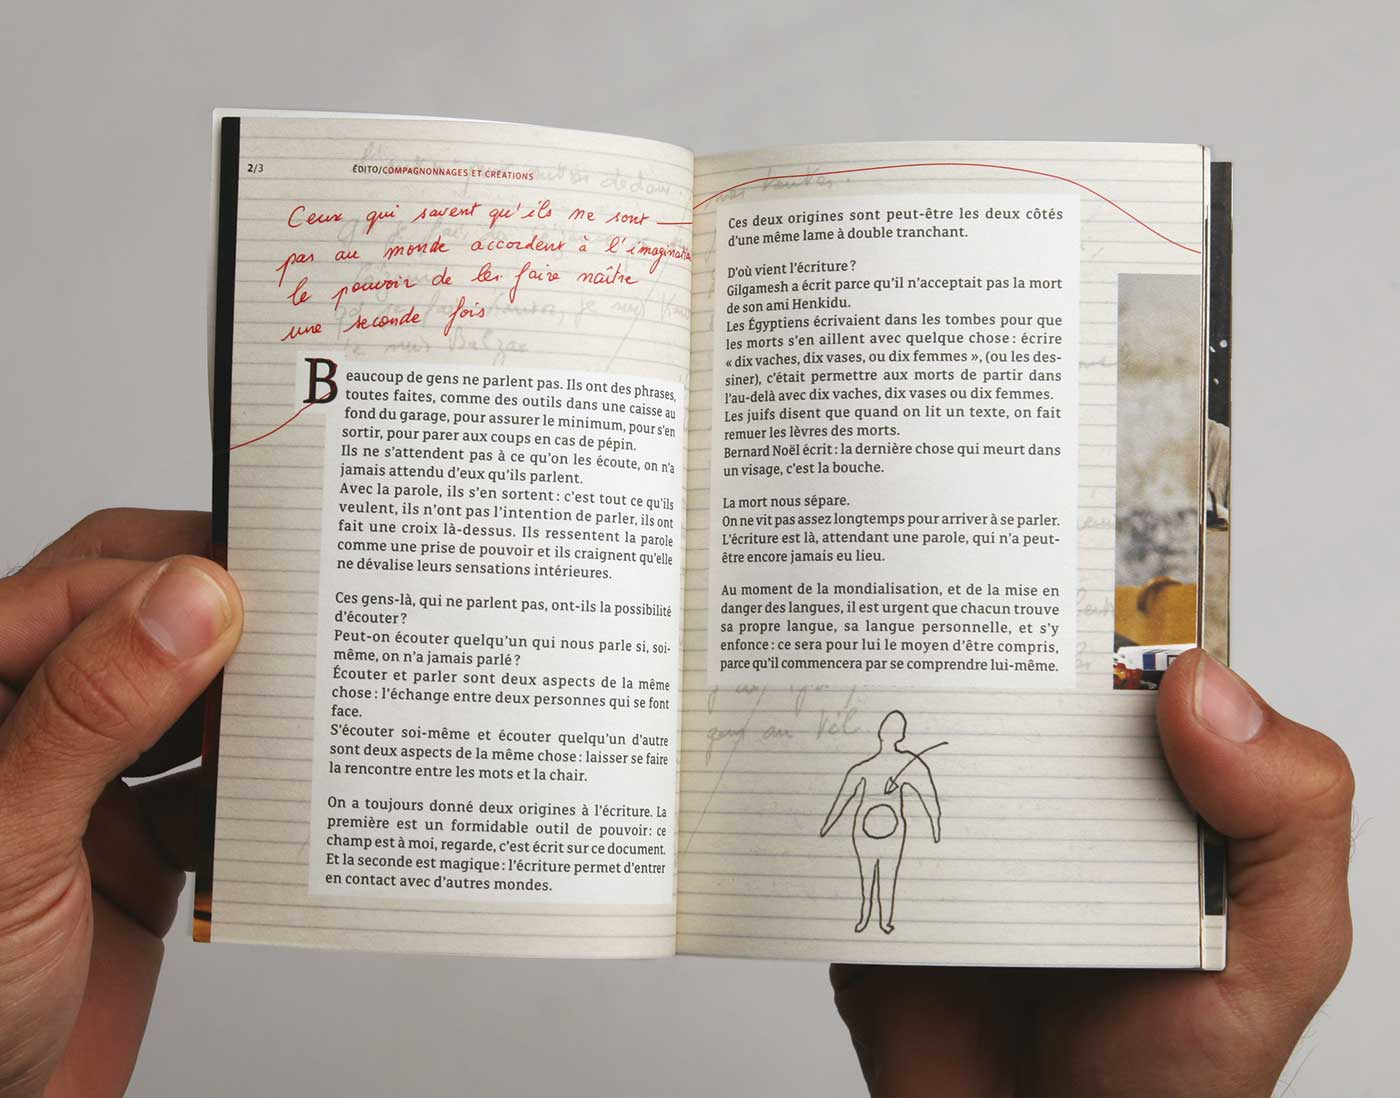 2/3
ÉDITO/COMPAGNONNAGES ET CRÉATIONS
Ceux qui savent qu'ils ne sont
pas au monde accordent à l'imagination
le pouvoir de les faire naître
une seconde fois
Beaucoup de gens ne parlent pas. Ils ont des phrases,
toutes faites, comme des outils dans une caisse au
fond du garage, pour assurer le minimum, pour s'en
sortir, pour parer aux coups en cas de pépin.
Ils ne s'attendent pas à ce qu'on les écoute, on n'a
jamais attendu d'eux qu'ils parlent.
Avec la parole, ils s'en sortent : c'est tout ce qu'ils
veulent, ils n'ont pas l'intention de parler, ils ont
fait une croix là-dessus. Ils ressentent la parole
comme une prise de pouvoir et ils craignent qu'elle
ne dévalise leurs sensations intérieures.
Ces gens-là, qui ne parlent pas, ont-ils la possibilité
d'écouter ?
Peut-on écouter quelqu'un qui nous parle si, soi-
même, on n'a jamais parlé ?
Écouter et parler sont deux aspects de la même
chose : l'échange entre deux personnes qui se font
face.
S'écouter soi-même et écouter quelqu'un d'autre
sont deux aspects de la même chose : laisser se faire
la rencontre entre les mots et la chair.
On a toujours donné deux origines à l'écriture. La
première est un formidable outil de pouvoir : ce
champ est à moi, regarde, c'est écrit sur ce document.
Et la seconde est magique : l'écriture permet d'entrer
en contact avec d'autres mondes.
Ces deux origines sont peut-être les deux côtés
d'une même lame à double tranchant.
D'où vient l'écriture ?
Gilgamesh a écrit parce qu'il n'acceptait pas la mort
de son ami Henkidu.
Les Égyptiens écrivaient dans les tombes pour que
les morts s'en aillent avec quelque chose : écrire
« dix vaches, dix vases, ou dix femmes », (ou les des-
siner), c'était permettre aux morts de partir dans
l'au-delà avec dix vaches, dix vases ou dix femmes.
Les juifs disent que quand on lit un texte, on fait
remuer les lèvres des morts.
Bernard Noël écrit : la dernière chose qui meurt dans
un visage, c'est la bouche.
La mort nous sépare.
On ne vit pas assez longtemps pour arriver à se parler.
L'écriture est là, attendant une parole, qui n'a peut-
être encore jamais eu lieu.
Au moment de la mondialisation, et de la mise en
danger des langues, il est urgent que chacun trouve
sa propre langue, sa langue personnelle, et s'y
enfonce : ce sera pour lui le moyen d'être compris,
parce qu'il commencera par se comprendre lui-même.